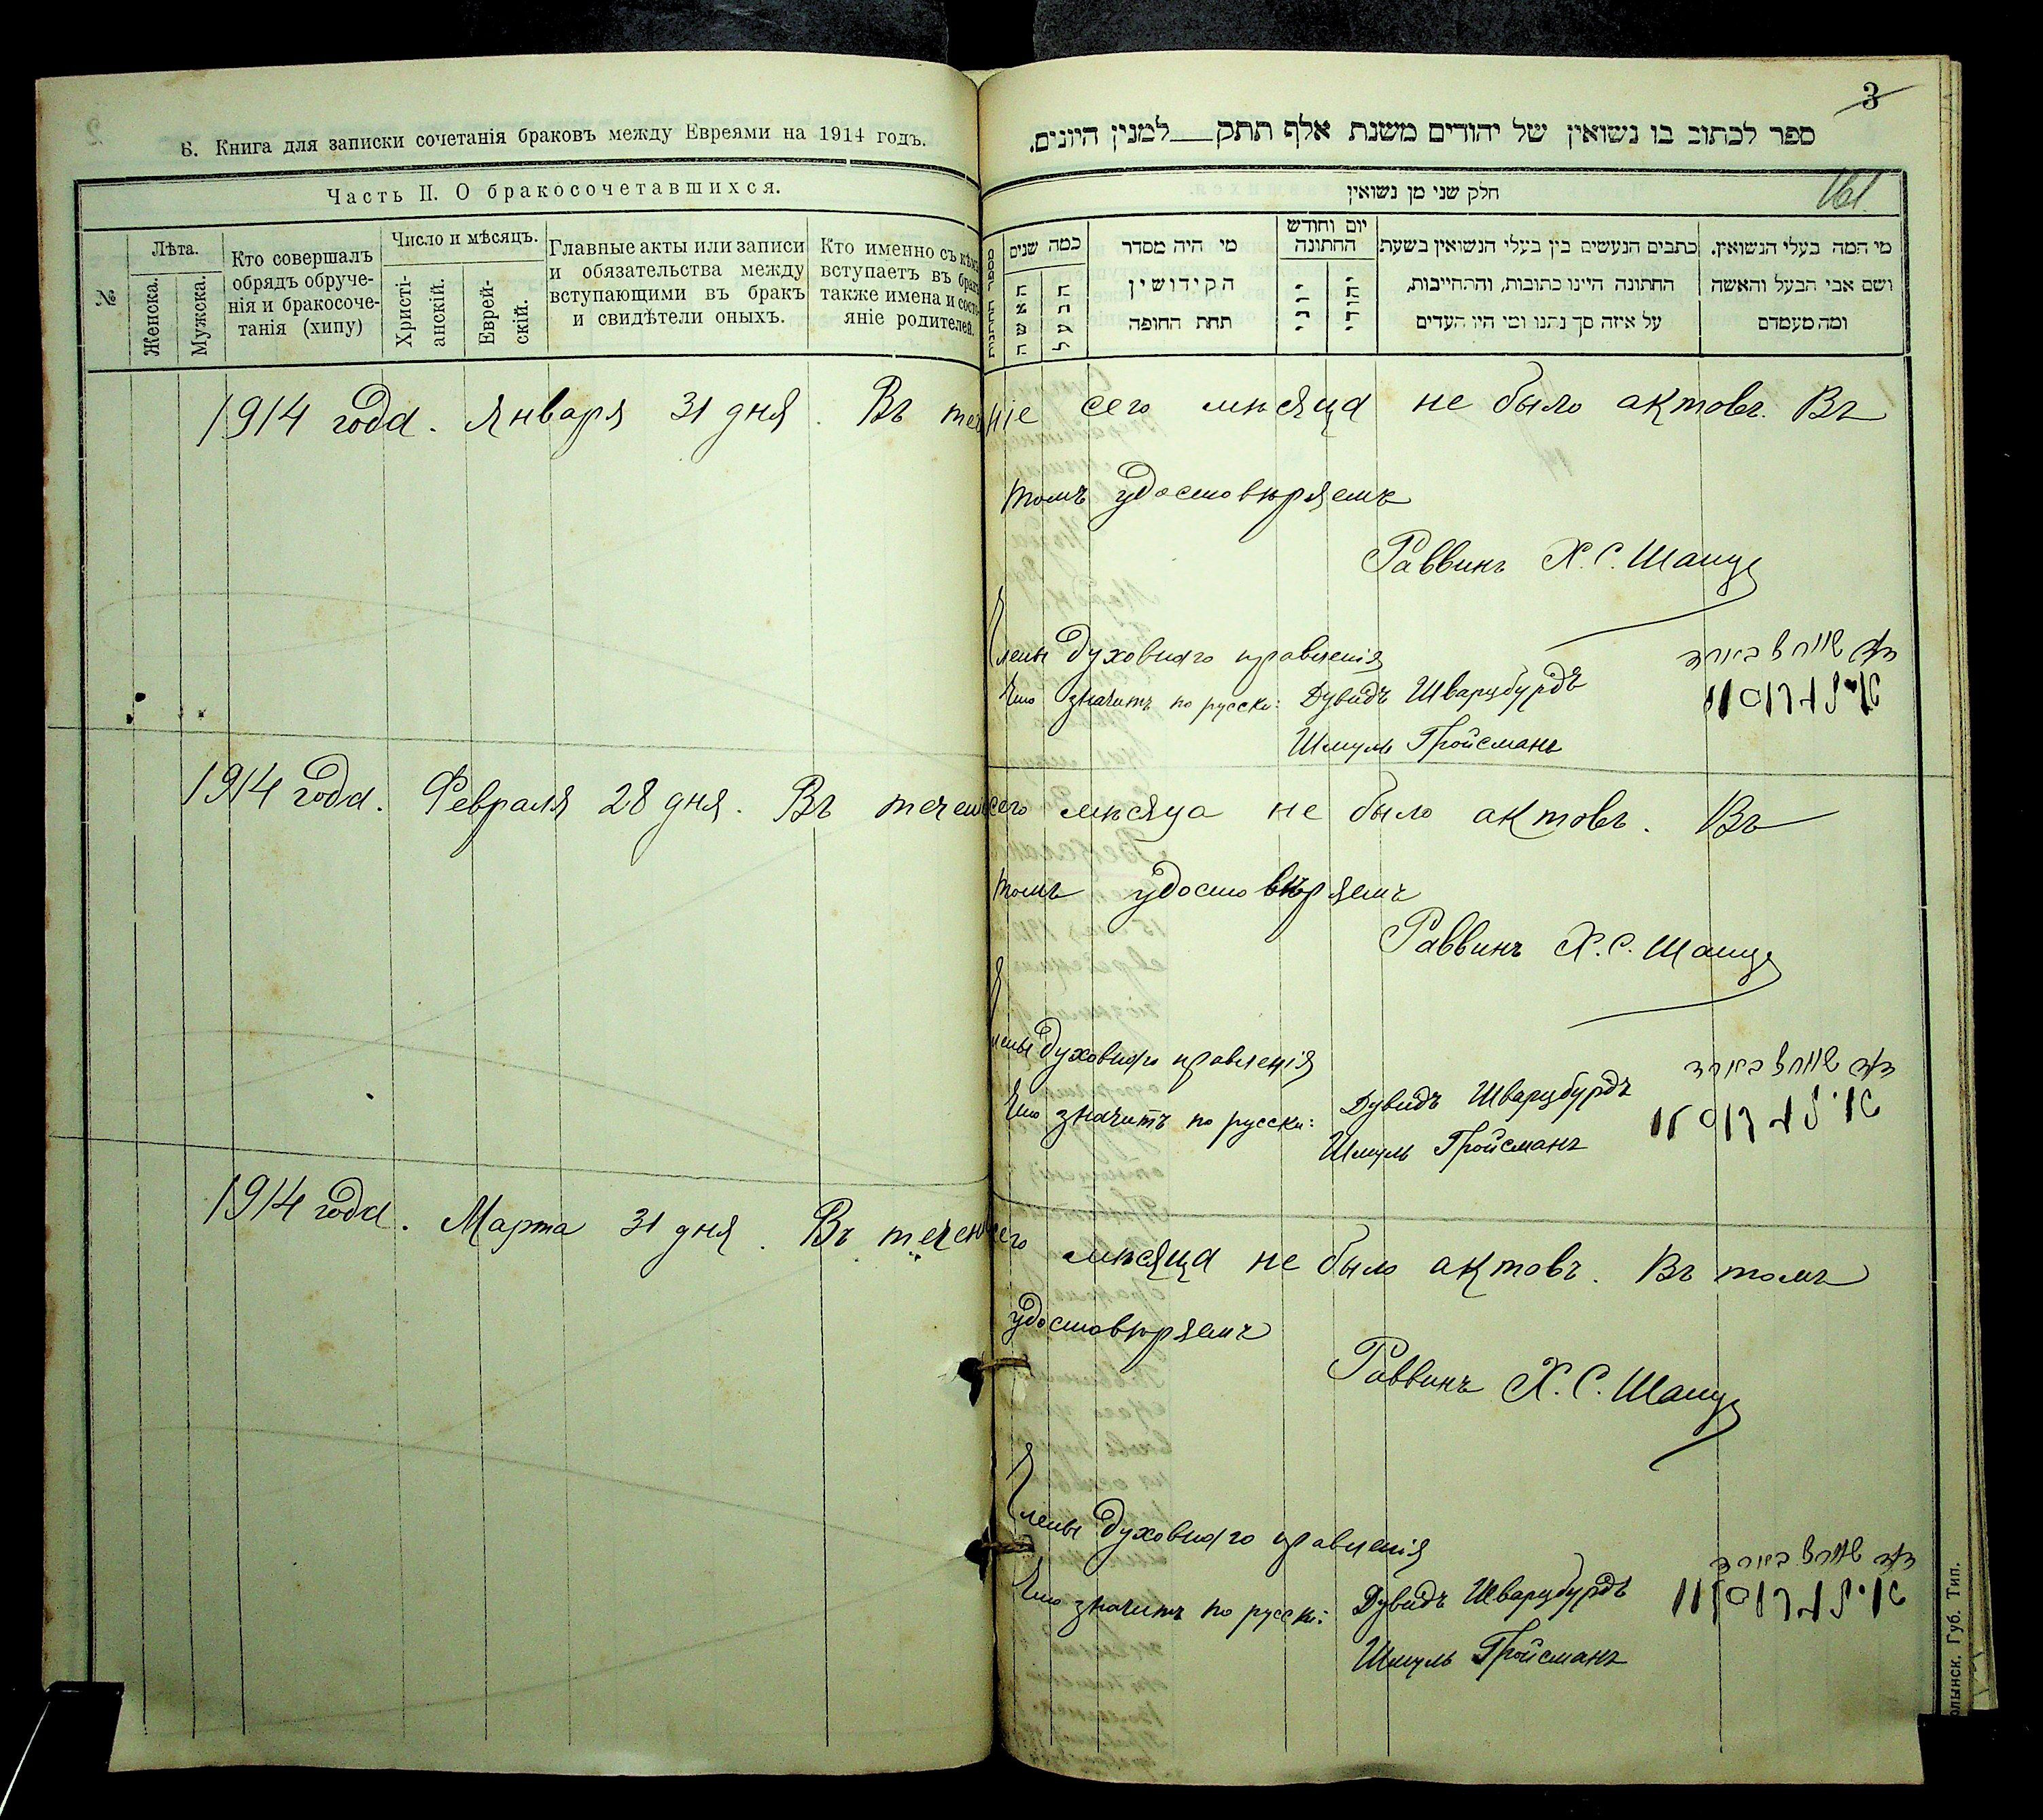 Б. Книга для записки сочетанія браковъ между Евреями на 1914 годъ.
Часть II. О бракосочетавшихся.
№
Лѣта.
Женска.
Мужска.
Кто совершалъ
обрядъ обруче-
нія и бракосоче-
танія (хипу)
Число и мѣсяцъ.
Христі-
анскій.
Еврей-
скій.
Главные акты или записи
и обязательства между
вступающими въ бракъ
и свидѣтели оныхъ.
Кто именно съ кѣмъ
вступаетъ въ бракъ
также имена и состо-
яніе родителей.
3
ספר לכתוב בו נשואין של יהודים משנת אלף תתק__למנין היונים.
161.
חלק שני מן נשואין
מי המה בעלי הנשואין.
ושם אבי הבעל והאשה
ומה מעמדם
כתבים הנעשים בין בעלי הנשואין בשעת
החתונה היינו כתובות, והתחייבות,
על איזה סך נתנו ומי היו העדים
יום וחודש
החתונה
יהודי
יוני
מי היה מסדר
הקידושין
תחת החופה
כמה שנים
הבעל
האשה
מספר החתונות
1914 года. Января 31 дня. Въ теченіе сего мѣсяца не было актовъ. Въ
томъ удостовѣряемъ
Раввинъ Х. С.
Члены духовнаго правленія
דוד שווארצבורד
Что значитъ по русски: Дувидъ Шварцбурдъ
שמיל גרויסמאן
Шмуль Гройсманъ
1914 года. Февраля 28 дня. Въ теченіе сего мѣсяца не было актовъ. Въ
томъ удостовѣряемъ
Раввинъ Х. С.
Члены духовнаго правленія
דוד שווארצבורד
Что значитъ по русски: Дувидъ Шварцбурдъ
שמיל גרויסמאן
Шмуль Гройсманъ
1914 года. Марта 31 дня. Въ теченіе сего мѣсяца не было актовъ. Въ томъ
удостовѣряемъ
Раввинъ Х. С.
Члены духовнаго правленія
דוד שווארצבורד
Что значитъ по русски: Дувидъ Шварцбурдъ
שמיל גרויסמאן
Шмуль Гройсманъ
олынск. Губ. Тип.